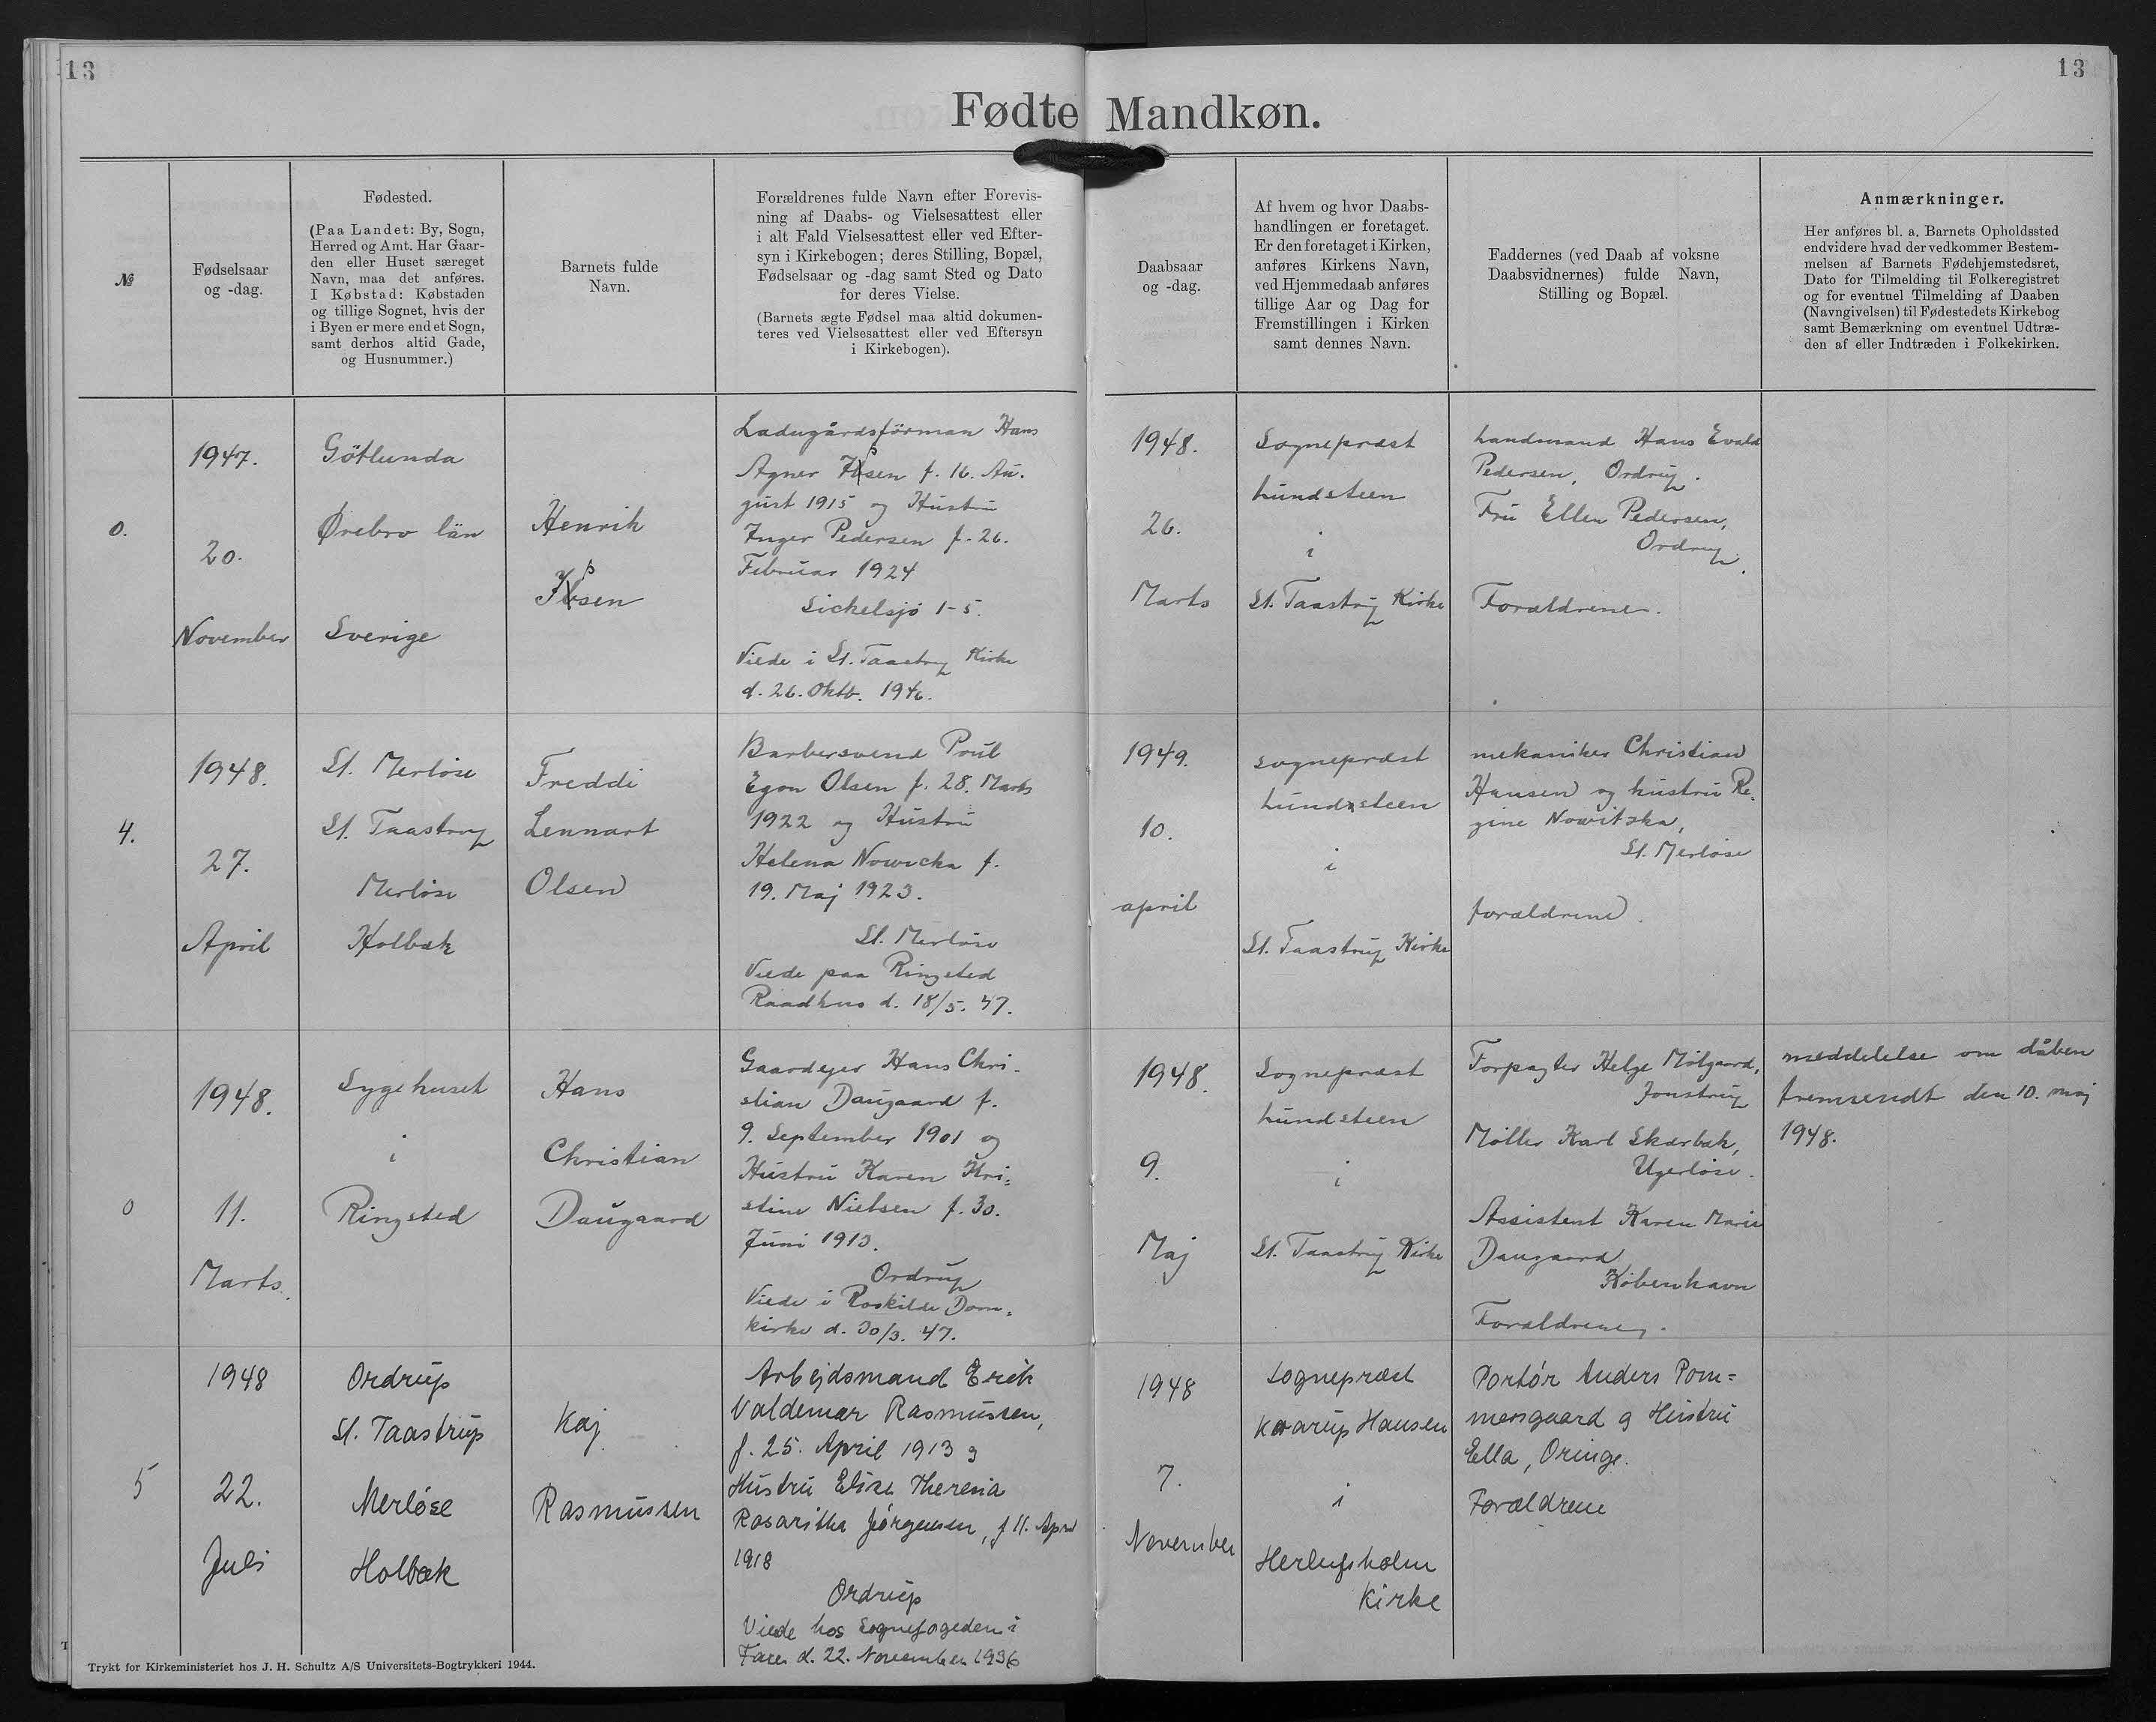 13
13
Fødte Mandkøn.
№
Fødselsaar
og -dag.
Fødested.
(Paa Landet: By, Sogn,
Herred og Amt. Har Gaar-
den eller Huset særeget
Navn, maa det anføres.
I Købstad: Købstaden
og tillige Sognet, hvis der
i Byen er mere end et Sogn,
samt derhos altid Gade,
og Husnummer.)
Barnets fulde
Navn.
Forældrenes fulde Navn efter Forevis-
ning af Daabs- og Vielsesattest eller
i alt Fald Vielsesattest eller ved Efter-
syn i Kirkebogen; deres Stilling, Bopæl,
Fødselsaar og -dag samt Sted og Dato
for deres Vielse.
(Barnets ægte Fødsel maa altid dokumen-
teres ved Vielsesattest eller ved Eftersyn
i Kirkebogen).
Daabsaar
og -dag.
Af hvem og hvor Daabs-
handlingen er foretaget.
Er den foretaget i Kirken,
anføres Kirkens Navn,
ved Hjemmedaab anføres
tillige Aar og Dag for
Fremstillingen i Kirken
samt dennes Navn.
Faddernes (ved Daab af voksne
Daabsvidnernes) fulde Navn,
Stilling og Bopæl.
Anmærkninger.
Her anføres bl. a. Barnets Opholdssted
endvidere hvad der vedkommer Bestem-
melsen af Barnets Fødehjemstedsret,
Dato for Tilmelding til Folkeregistret
og for eventuel Tilmelding af Daaben
(Navngivelsen) til Fødestedets Kirkebog
samt Bemærkning om eventuel Udtræ-
den af eller Indtræden i Folkekirken.
0.
1947.
20.
November
Götlunda
Ørebro län
Sverige
Henrik
Ladugårdsförman Hans
Agner f. 16. Au-
gust 1915 og Hustru
Inger Pedersen f. 26.
Februar 1924
Sickelsjö 1-5.
Viede i St. Taastrup Kirke
d. 26. Oktb. 1946.
1948.
26.
Marts
Sognepræst
Lundsteen
i
St. Taastrup Kirke
Landmand Hans Evald
Pedersen, Ordrup.
Fru Ellen Pedersen,
Ordrup.
Forældrene.
4.
1948.
27.
April
St. Merløse
St. Taastrup
Merløse
Holbæk
Freddi
Lennart
Olsen
Barbersvend Poul
Egon Olsen f. 28. Marts
1922 og Hustru
Helena Nowicka f.
19. Maj 1923.
St. Merløse
Viede paa Ringsted
Raadhus d. 18/5. 47.
1949.
10.
april
sognepræst
Lundsteen
i
St. Taastrup Kirke
mekaniker Christian
Hansen og hustru Re-
gine Nowitzka,
St. Merløse
forældrene.
0
1948.
11.
Marts.
Sygehuset
i
Ringsted
Hans
Christian
Daugaard
Gaardejer Hans Chri-
stian Daugaard f.
9. September 1901 og
Hustru Karen Kri-
stine Nielsen f. 30.
Juni 1913.
Ordrup
Viede i Roskilde Dom-
kirke d. 30/3. 47.
1948.
9.
Maj
Sognepræst
Lundsteen
i
St. Taastrup Kirke
Forpagter Helge Mølgaard,
Jonstrup
Møller Karl Skærbæk,
Ugerløse.
Assistent Karen Marie
Daugaard
København
Forældrene.
meddelelse om dåben
fremsendt den 10. maj
1948.
5
1948
22.
Juli
Ordrup
St. Taastrup
Merløse
Holbæk
Kaj
Rasmussen
Arbejdsmand Erik
Valdemar Rasmussen,
f. 25. April 1913 og
Hustru Elise Theresia
Rosaritha Jørgensen, f 11. April
1918
Ordrup
Viede hos Sognefogeden i
d. 22. November 1936
1948
7.
November
Sognepræst
Kaarup Hansen
i
Herlufsholm
Kirke
Portør Anders Pom=
mergaard og Hustru
Ella, Oringe.
Forældrene
Trykt for Kirkeministeriet hos J. H. Schultz A/S Universitets-Bogtrykkeri 1944.